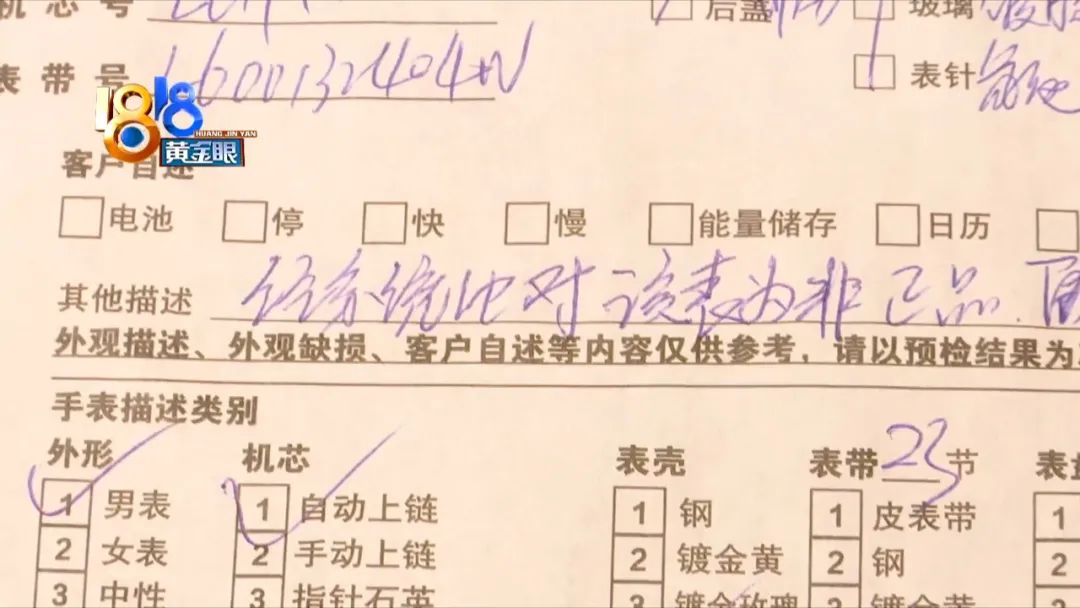 机芯号
后盖
玻璃
表带号 L600132404W
表针
1818
HUANG JIN YAN
黄金眼
客户自述
电池 停 快 慢 能量储存 日历
其他描述 经系统比对该表为非正品.
外观描述、外观缺损、客户自述等内容仅供参考，请以预检结果为
手表描述类别
外形 机芯 表壳 表带23节
1 男表 1 自动上链 1 钢 1 皮表带 1
2 女表 2 手动上链 2 镀金黄 2 钢 2
3 中性 3 指针石英 3 镀金玫瑰 3 镀金黄